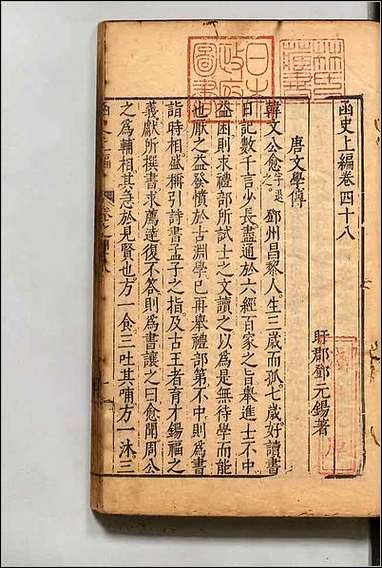 函史上編卷四十八
盱郡鄧元錫著
唐文學傳
韓文公愈字退之鄧州昌黎人生三歲而孤七歲好讀書
日記數千言少長盡通於六經百家之旨舉進士不中
益困則求禮部所試士之文讀之以為是無待學而能
也厭之益發憤於古淵學已再舉禮部第不中則為書
詣時相盛稱引詩書孟子之指及古王者育才錫福之
義獻所撰書求薦達復不答則為書讓之曰愈聞周公
之為輔相其急於見賢也方一食三吐其哺方一沐三
函史上編
日本政府圖書